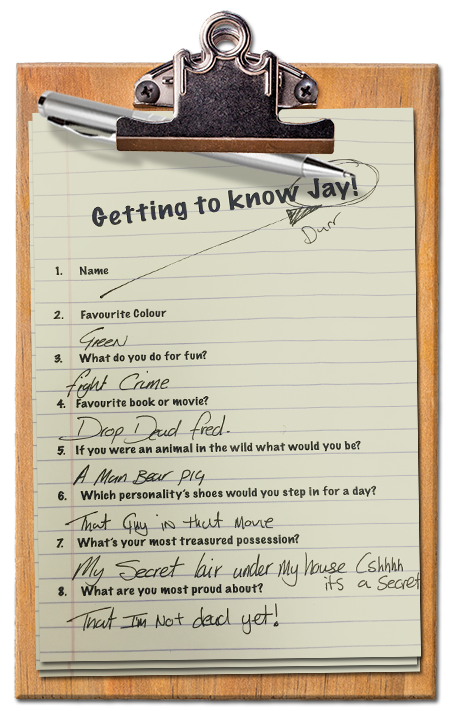 Getting to know Jay!
Durr
1. Name
2. Favourite Colour
Green
3. What do you do for fun?
fight Crime
4. Favourite book or movie?
Drop Dead fred.
5. If you were an animal in the wild what would you be?
A Man Bear pig
6. Which personality's shoes would you step in for a day?
That Guy in that Movie
7. What's your most treasured possession?
My Secret lair under My house (shhhh
its a Secret
8. What are you most proud about?
That Im Not dead yet!